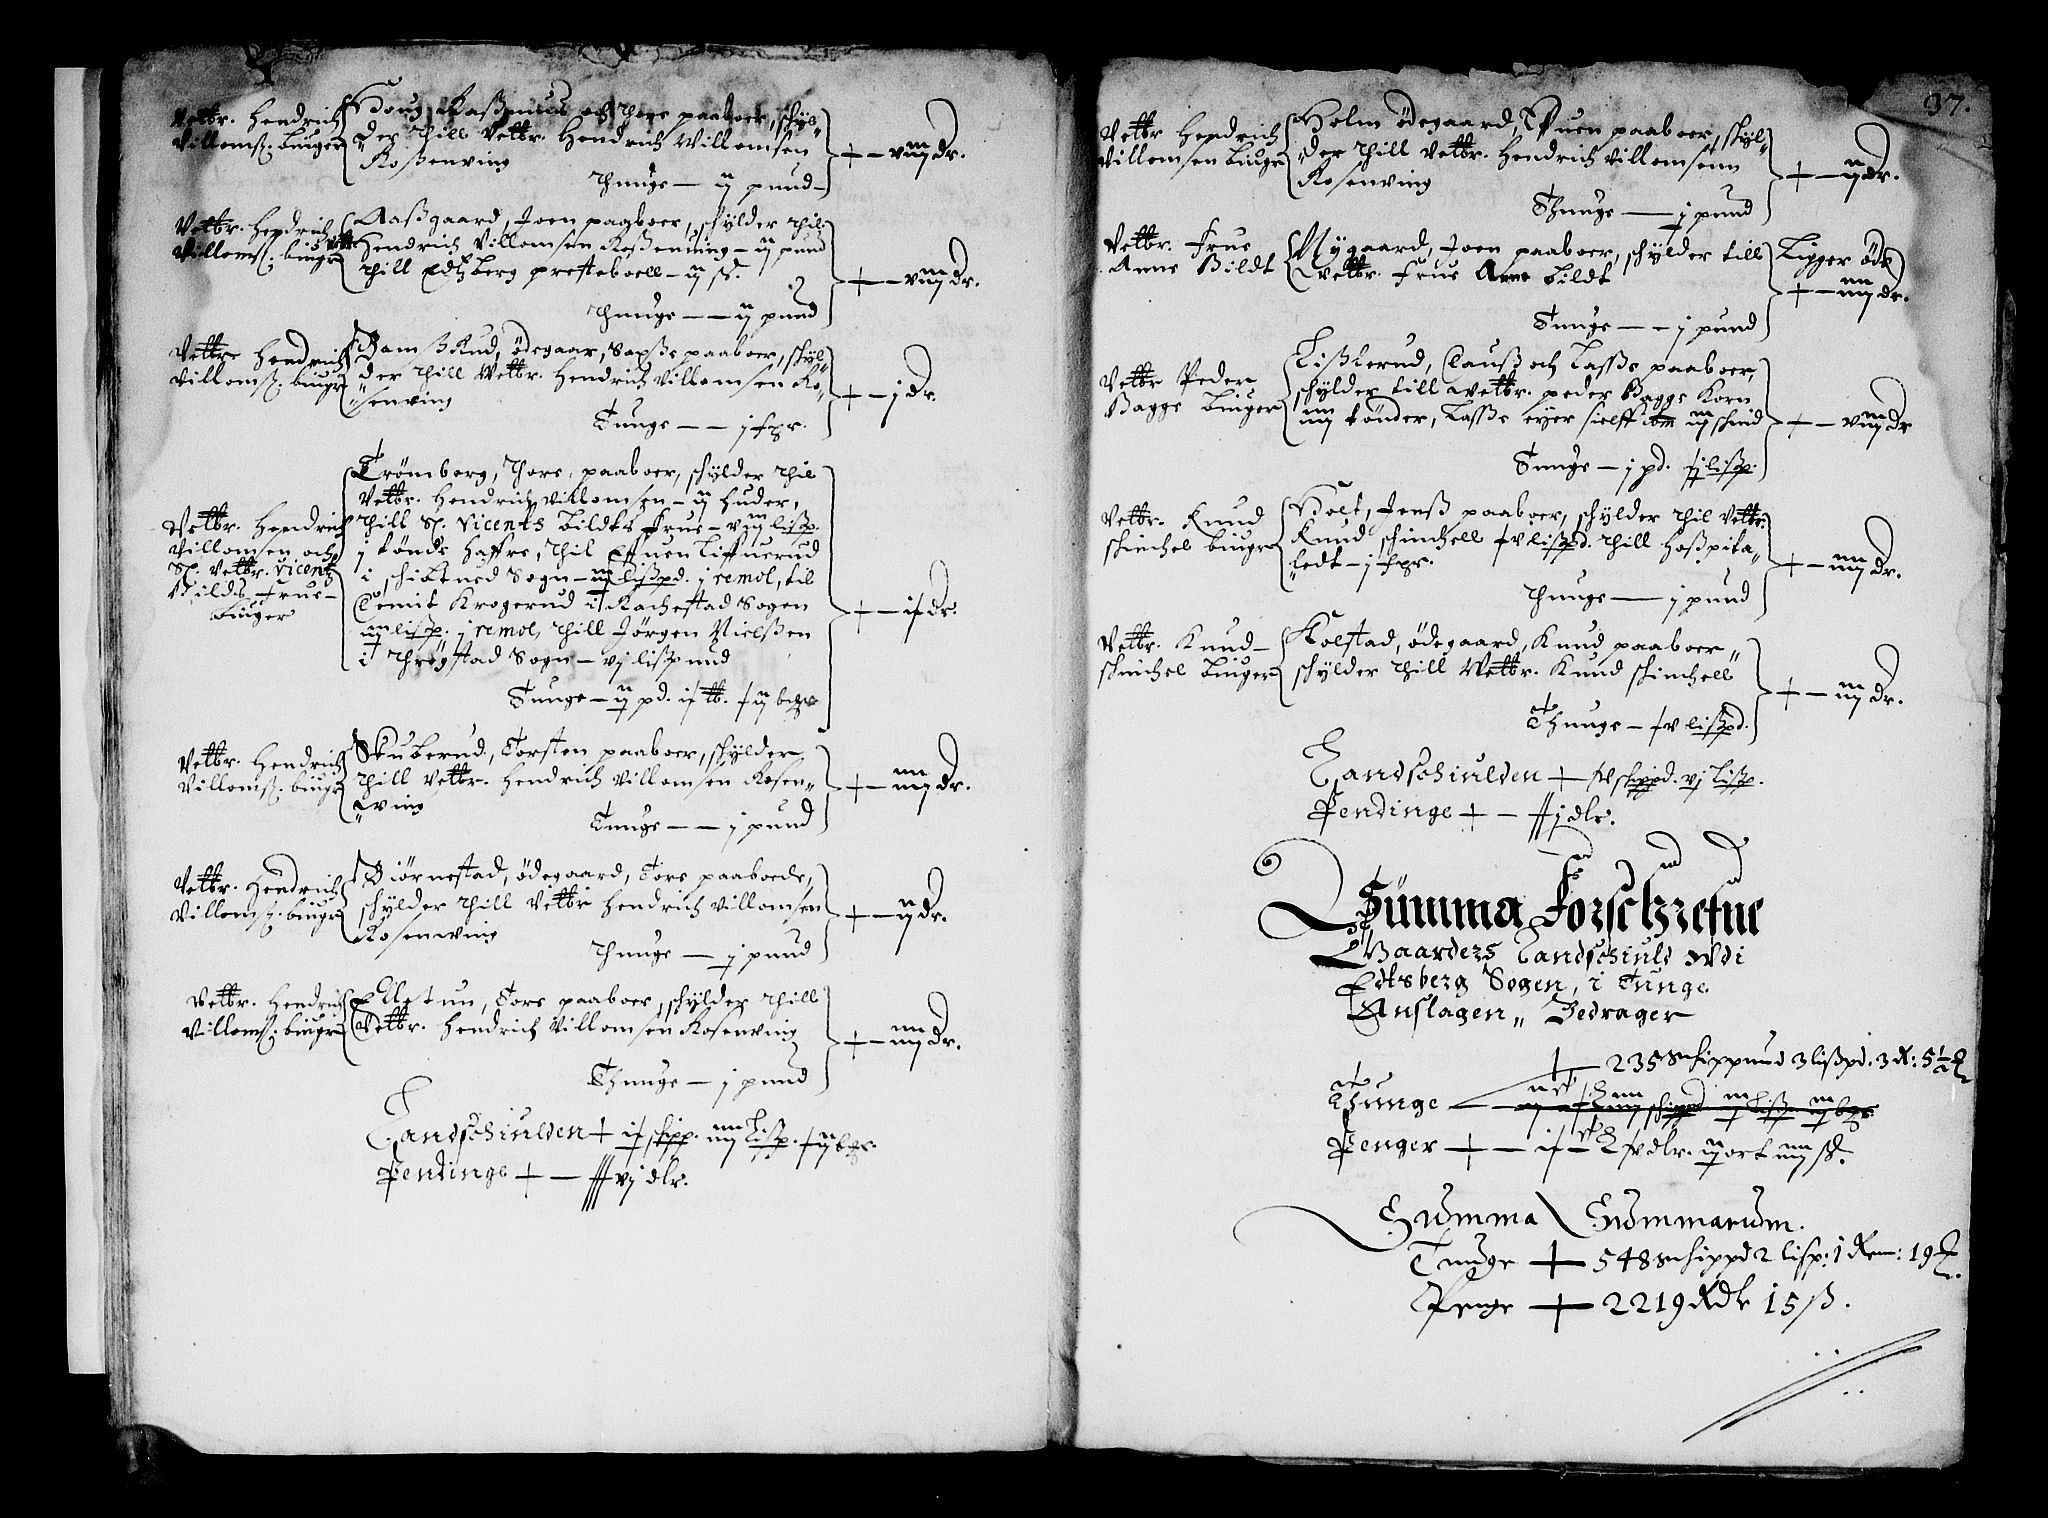 Velbr. Hendrich
Villomsß. biuger
Houg, Raßmus och Thore paaboer, schyl„
„der thill Velbr. Hendrich Willomsen
Roßenving
Thunge — ij pund —
+ — viij dr.
Velbr. Hendrich
Villomß. biuger
Aaßgaard, Joen paaboer, schylder thil
Velbr. Hendrich Villomsen Roßenuing — ij pund
thill Edtzberg presteboell — ij ß.
Thunge — — ij pund
+ — viij dr.
Velbr. Hendrich
Villomß. biuger
Ramßrud, ödegaar, Saxße paaboer, schyl„
der thill Velbr. Hendrich Villomsen Ro„
„senving
Tunge — — j fpr.
+ — j dr.
Velbr. Hendrich
Villomsen och
Sl. Velbr. Vicents
Bilds frue —
biuger
Trömborg, Thore, paaboer, schylder thil
Velbr. Hendrich Villomsen — ij huder,
thill Sl. Vicents Bildts frue — viij lißp.
j tönde haffre, thil Effuen Liffuerud
i schibtued Sogn — iij lißpd. j remol, til
Temit Krogerud i Rachestad Sogen
iiij lißp. j remol, thill Jörgen Nielßen
i Thrögstad Sogn — vj lißpund
Tunge — ij pd.
Velbr. Hendrich
Villomß. biuger
Skuberud, Torsten paaboer, schylder
thill Velbr. Hendrich Villomsen Rosen„
„wing
Tunge — — j pund
+ — iiij dr.
Velbr. Hendrich
Villomß. biuger
Biörnestad, ödegaard, Tore paaboede,
schylder thill Velbr Hendrich Villomsen
Rosenwing
Thunge — j pund
+ — ij dr.
Velbr. Hendrich
Villomß. biuger
Elletun, Tore paaboer, schylder thill
Velbr. Hendrich Villomsen Rosenving
Thunge — j pund
+ — iiij dr.
Landschiulden + schipp. iiij Lißp.
Pendinge + — vj dlr.
37.
Velbr Hendrich
Villomsen biuger
Holm ödegaard, paaboer, schyl„
„der thill Velbr. Hendrich Villomsenn
Rosenving
Thunge — j pund
+ — ij dr.
Velbr. Frue
Anne Bildt
Nygaard, Joen paaboer, schylder till
Velbr. Frue Anne Bildt
Tunge — — j pund
Ligger öde
+ — iiij dr.
Velbr Peder
Bagge biuger
Lißlerud, Clauß och Lasse paaboer,
schylder till Velbr. peder Bagge Korn
iiij tönder, Lasse eyer sielff iij schind
Tunge — j pd. lißp.
+ — viij dr
Velbr. Knud
schinchel biuger
Holt, Jenß paaboer, schylder thil Velbr.
Knud schinchell lißpd. thill hoßpita„
„ledt — j fpr.
Thunge — j pund
+ — iiij dr.
Velbr. Knud —
schinchel biuger
Kolstad, ödegaard, Knud paaboer„
schylder thill Velbr. Knud schinchell
Thunge — lißpd.
+ — iij dr.
Landschiulden + schippd. vj Lißp.
Pendinge + — j dlr.
Summa Forschrefne
Gaarders Landschiuld vdi
Edtsberg Sogen, i Tunge
Anslagen„ Bedrager
+ 235 schippund 3 lißpd. 3 R: 5½
Thunge
Penger + — dlr. ij ort iiij ß.
Summa Summarum.
Tunge + 548 schippd 2 lisp: 1 Rem: 19
Penge + 2219 Rdlr 15 ß.